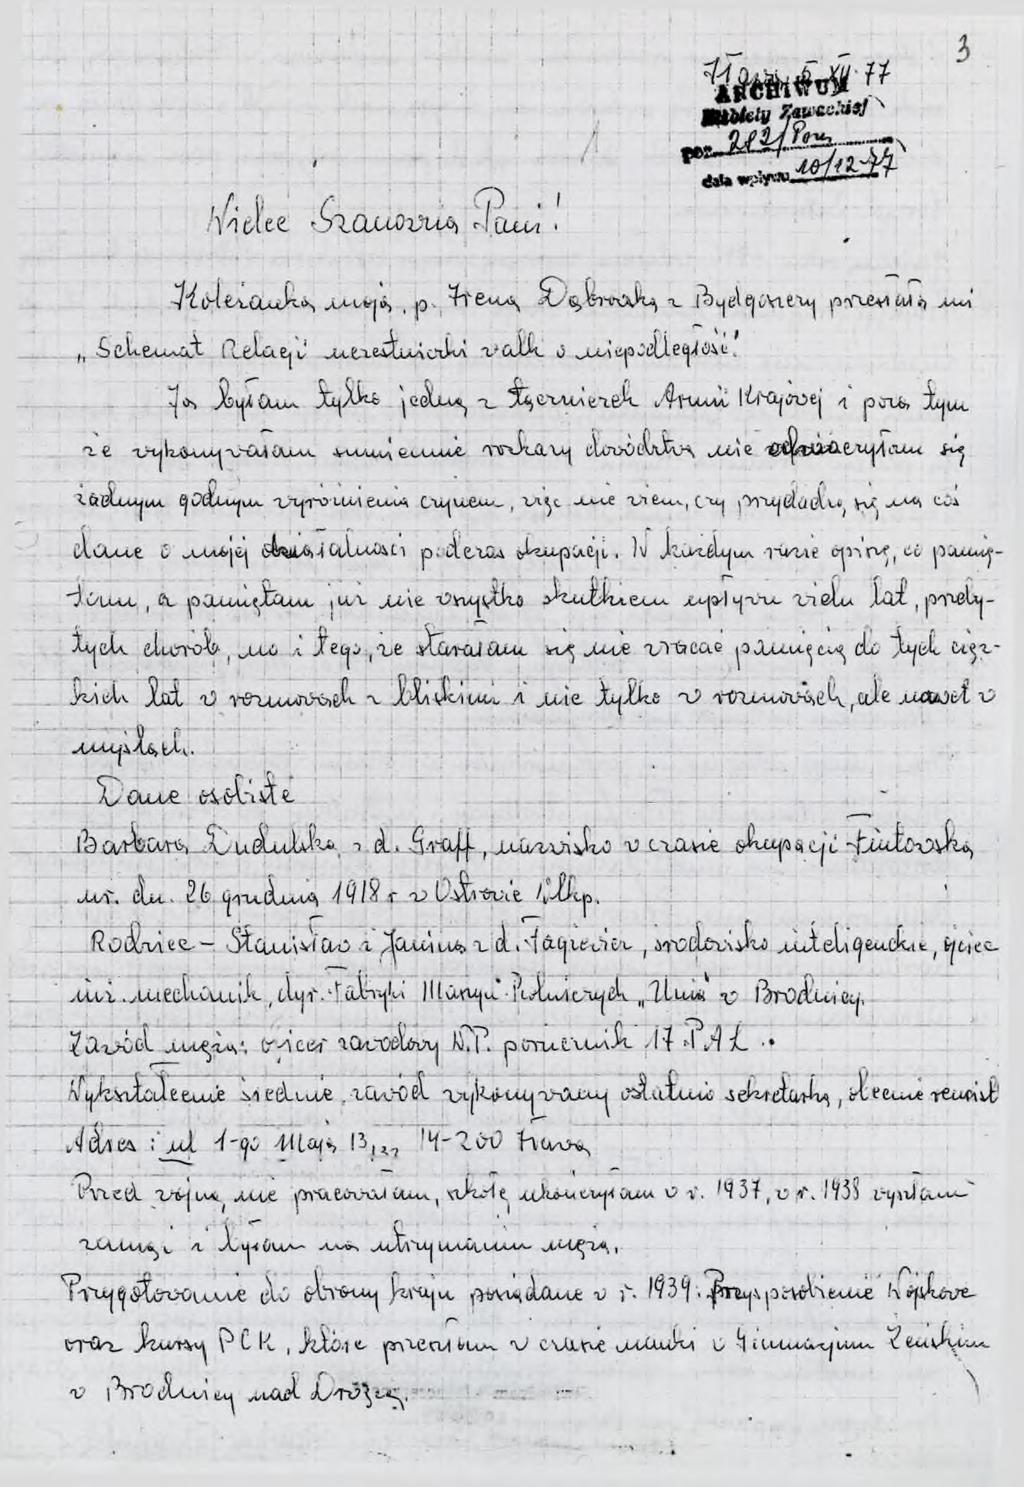 3
Iława, 5 XII 77
ARCHIWUM
Elżbiety Zawackiej
poz. 282/Pom
data wpływu 10/12-77
Wielce Szanowna Pani!
Koleżanka moja, p. Irena Dąbrowska z Bydgoszczy przesłała mi
„Schemat Relacji uczestniczki walk o niepodległość".
Ja byłam tylko jedną z łączniczek Armii Krajowej i poza tym
że wykonywałam sumiennie rozkazy dowództwa nie odznaczyłam się
żadnym godnym wyróżnienia czynem, więc nie wiem, czy przydadzą się na coś
dane o mojej działalności podczas okupacji. W każdym razie opiszę, co pamię-
tam, a pamiętam już nie wszystko skutkiem upływu wielu lat, przeby-
tych chorób, no i tego, że starałam się nie wracać pamięcią do tych cięż-
kich lat w rozmowach z bliskimi i nie tylko w rozmowach, ale nawet w
myślach.
Dane osobiste
Barbara Dudulska z d. Graff, nazwisko w czasie okupacji Fintowska
ur. dn. 26 grudnia 1918 r w Ostrowie Wlkp.
Rodzice – Stanisław i Janina z d. Fagiewicz, środowisko inteligenckie, ojciec
inż. mechanik, dyr. Fabryki Maszyn Rolniczych „Unia" w Brodnicy.
Zawód męża: oficer zawodowy W.P. porucznik 17 PAL.
Wykształcenie średnie, zawód wykonywany ostatnio sekretarka, obecnie rencist
Adres: ul 1-go Maja 13, 14-200 Iława
Przed wojną nie pracowałam, szkołę ukończyłam w r. 1937, w r. 1938 wyszłam
zamąż i byłam na utrzymaniu męża.
Przygotowanie do obrony kraju posiadane w r. 1939: Przysposobienie Wojskowe
oraz kursy PCK, które przeszłam w czasie nauki w Gimnazjum Żeńskim
w Brodnicy nad Drwęcą.